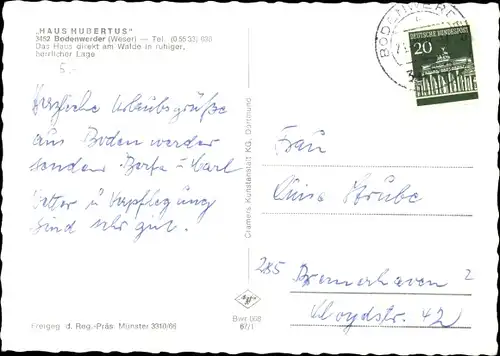 „HAUS HUBERTUS"
3452 Bodenwerder (Weser) — Tel. (05533) 630
Das Haus direkt am Walde in ruhiger,
herrlicher Lage
5.-
Herzliche Urlaubsgrüße
aus Bodenwerder
senden Berta u Karl
Wetter u Verpflegung
sind sehr gut.
Freigeg. d. Reg.-Präs. Münster 3310/66
Cramers Kunstanstalt KG, Dortmund
Bwr 668
67/1
BODENWERDER
20
DEUTSCHE BUNDESPOST
Frau
Luise Strube
285 Bremerhaven 2
Lloydstr. 42